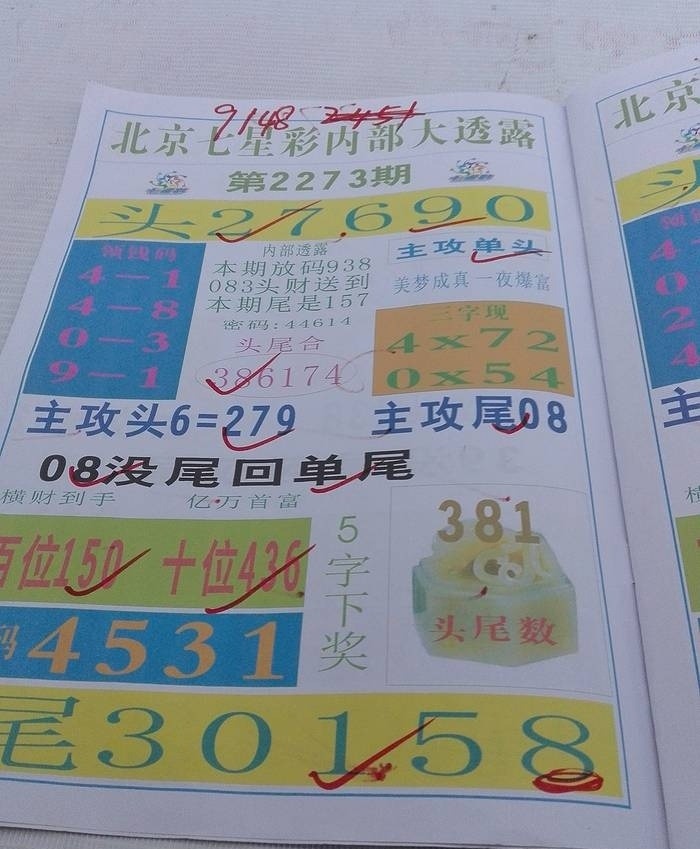 9148 2451
北京七星彩内部大透露
第2273期
头27690
领钱码
4-1
4-8
0-3
9-1
内部透露
本期放码938
083头财送到
本期尾是157
密码:44614
头尾合
386174
主攻单头
美梦成真一夜爆富
三字现
4x72
0x54
主攻头6=279
主攻尾08
08没尾回单尾
横财到手
亿万首富
百位150 十位436
码4531
5字下奖
381
头尾数
尾30158
北京
头
4
0
2
4
主